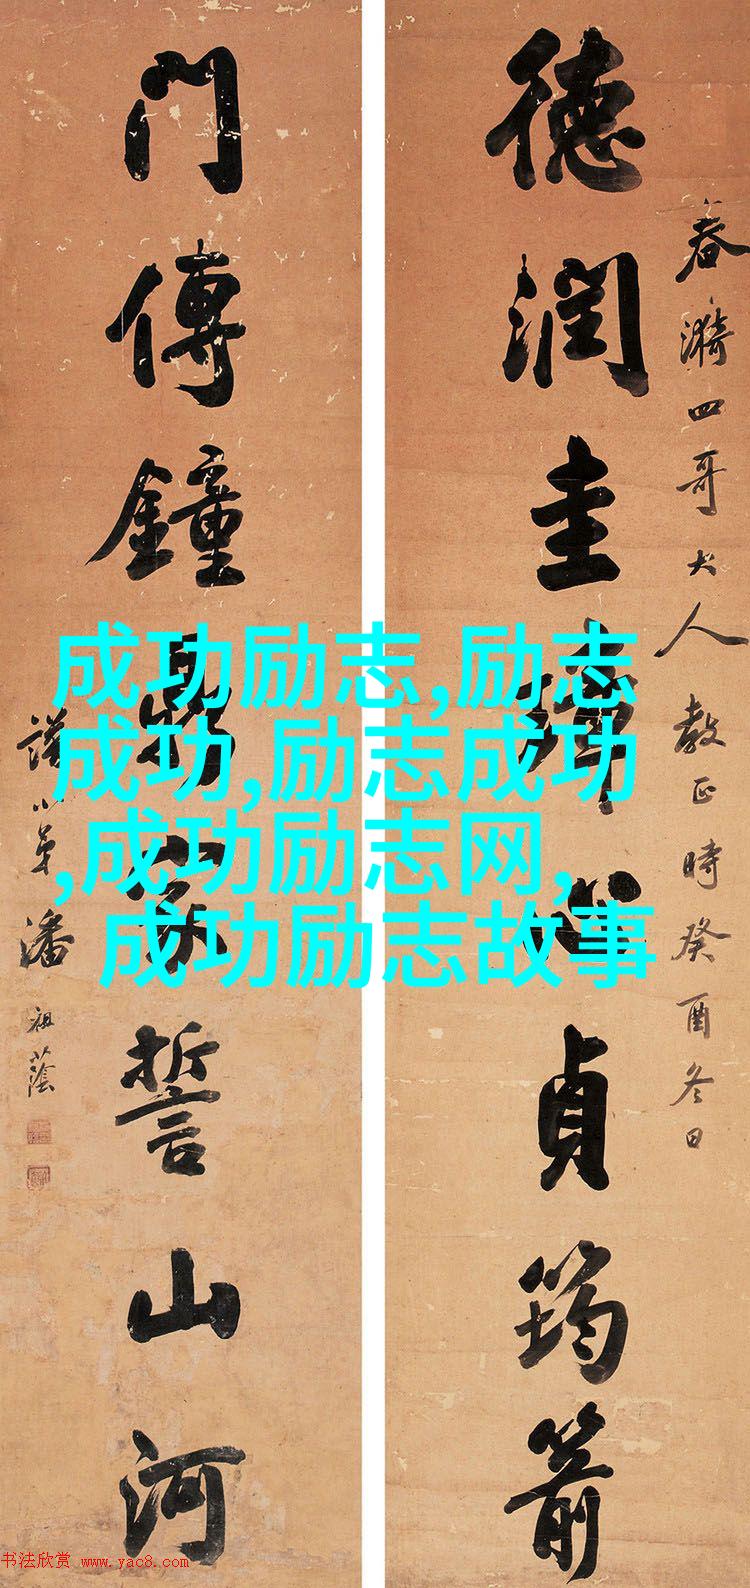 春漪四哥大人教正時癸酉冬日
德潤圭璋心貞筠箭
門傳鐘鼎家誓山河
譜小弟潘祖蔭
成功励志,励志
成功,励志成功
,成功励志网,
成功励志故事
书法欣赏 www.yac8.com